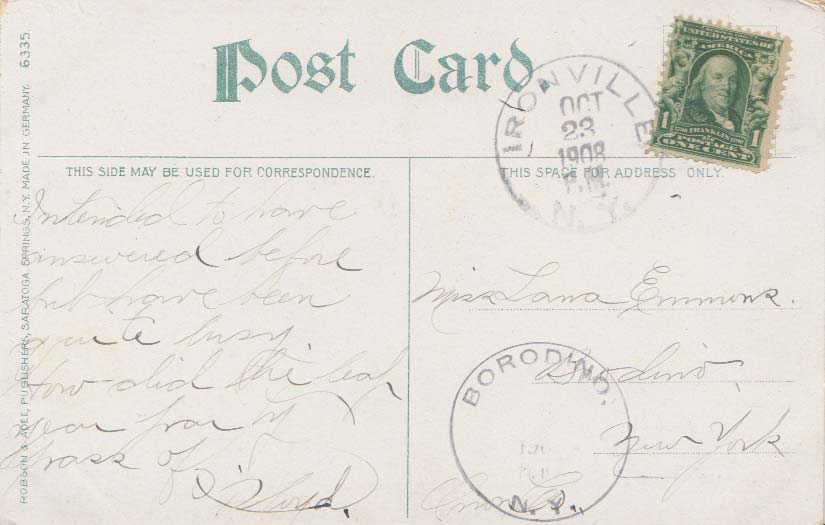 Post Card.
IRONVILLE
OCT
23
1908
P.M.
N.Y.
UNITED STATES OF
AMERICA
1 1706 FRANKLIN 1790 1
POSTAGE
ONE CENT
THIS SIDE MAY BE USED FOR CORRESPONDENCE.
THIS SPACE FOR ADDRESS ONLY.
Intended to have
answered before
but have been
quite busy.
How did the leap
year
pass off
Lloyd.
Miss Lana Emmons.
Borodino,
New York
BORODINO.
190
N.Y.
ROBSON & ADEE, PUBLISHERS, SARATOGA SPRINGS, N.Y. MADE IN GERMANY. 6335.